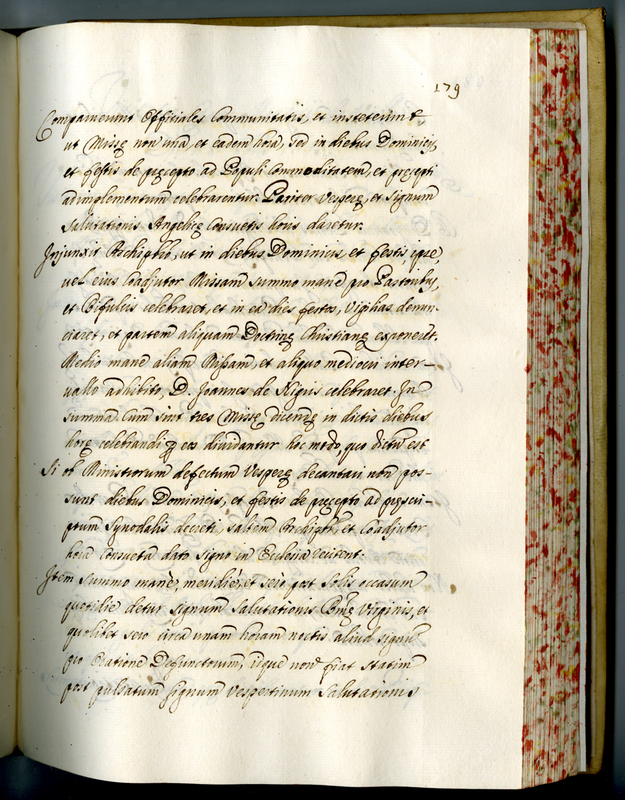 179
Comparuerunt Officiales Communitatis, et institerunt
ut Missę non una, et eadem hora, sed in diebus Dominicis,
et festis de pręcepto ad Populi Commoditatem, et pręcepti
adimplementum celebrarentur. Pariter Vesperę, et signum
Salutationis Angelicę Consuetis horis daretur.
Injunxit Archipbro, ut in diebus Dominicis et festis, ipse,
vel eius Coadjutor Missam summo mane pro Pastoribus,
et Bifulcis celebraret, et in ea dies festos, Vigilias denun-
ciaret, et partem aliquam Doctrinę Christianę exponeret.
Medio mane aliam Missam, et aliquo mediocri inter-
vallo adhibito, D. Joannes de Nigris celebraret. In
summa Cum sint tres Missę dicendę in dictis diebus
horę celebrandi eas dividantur hoc modo, quo dictum est
Si ob Ministrorum defectum Vesperę decantari non pos-
sunt diebus Dominicis, et festis de pręcepti ad pręscri-
ptum Synodalis decreti, saltem Archipbr, et Coadjutor
hora consueta dato signo in Ecclesia recitent.
Item summo mane, meridie, et sero post solis occasum
quotidie detur signum Salutationis Bmę Virginis, et
quolibet sero circa unam horam noctis aliud signum
pro Oratione Defunctorum, idque non fiat statim
post pulsatum signum Vespertinum Salutationis